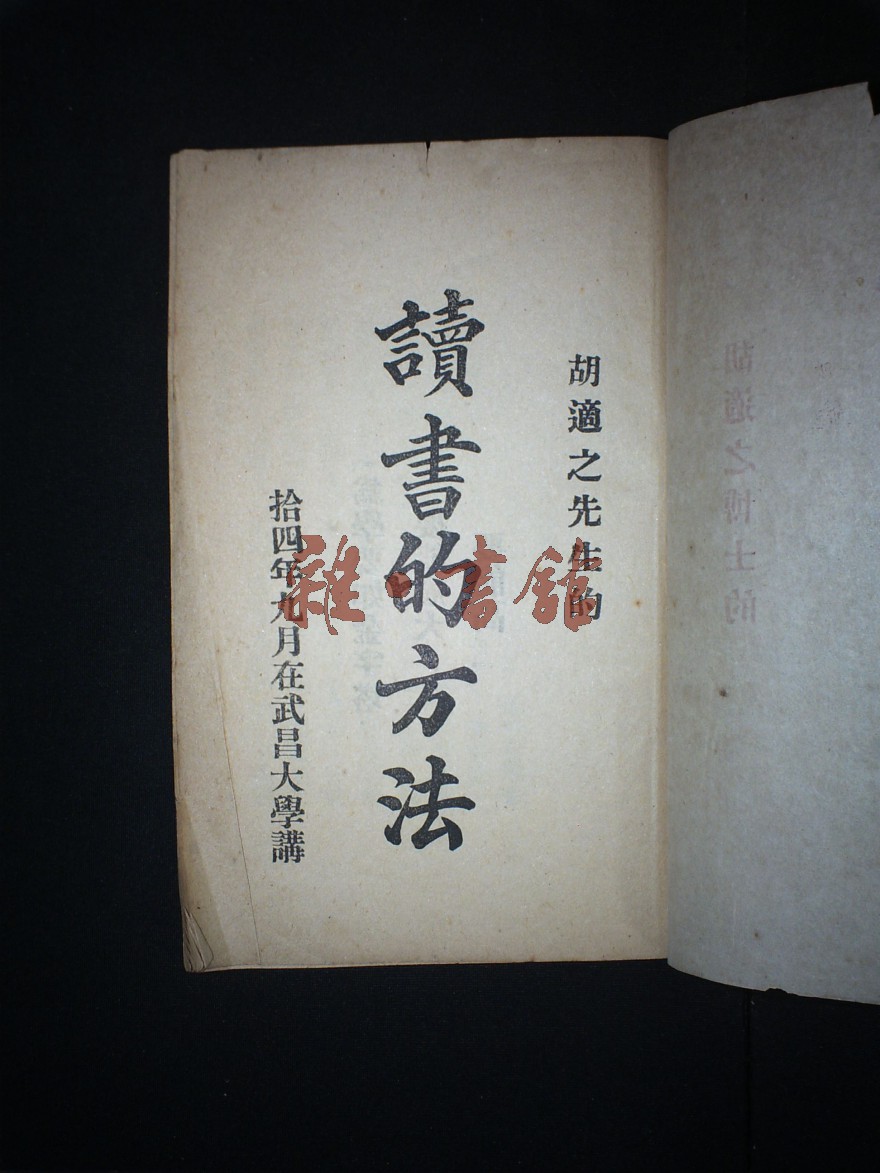 胡適之先生的
讀書的方法
拾四年九月在武昌大學講
雜·書館
胡適之博士的